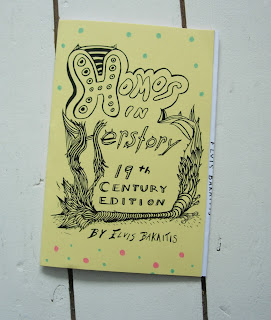 HOMOS
IN
Herstory
19th
CENTURY
EDITION
BY ELVIS BAKAITIS
ELVIS BAKAITIS